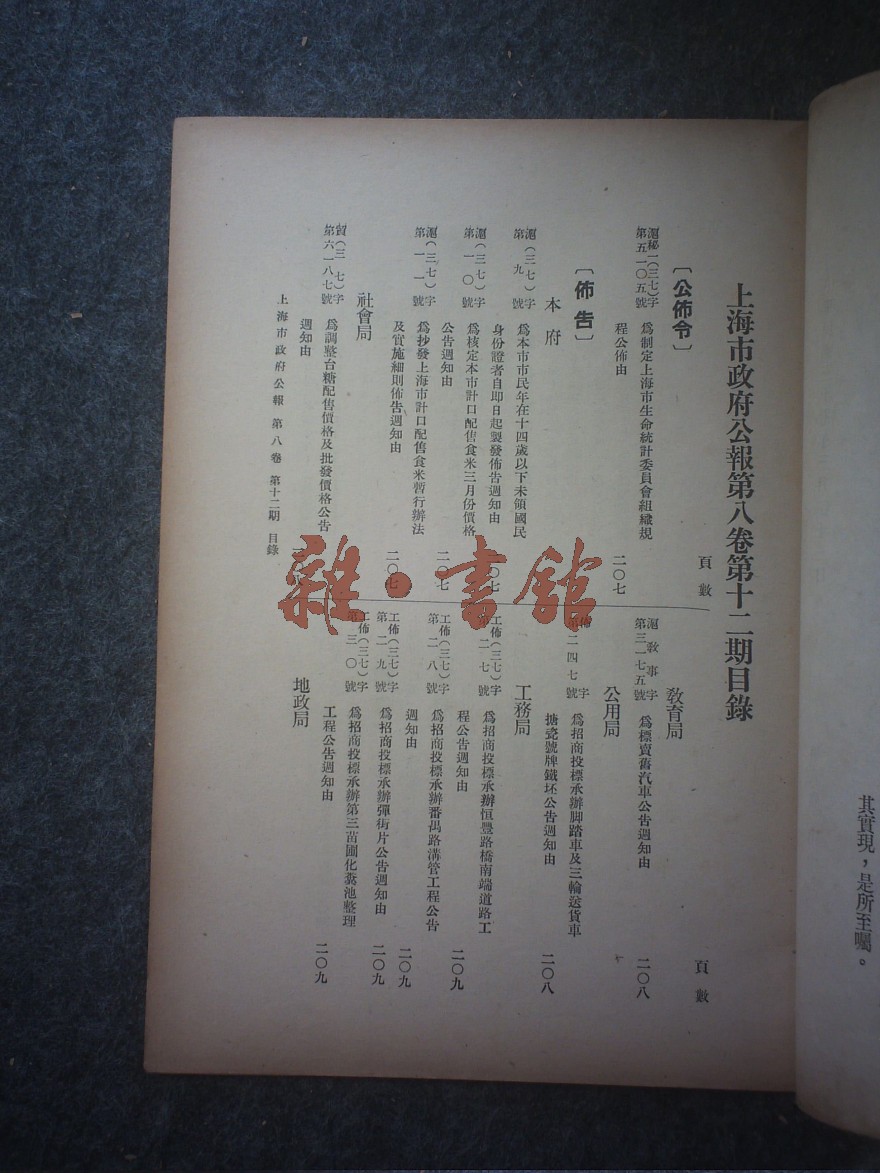 上海市政府公報第八卷第十二期目錄
頁數
〔公佈令〕
滬秘一(三七)字
第五一〇五號
爲制定上海市生命統計委員會組織規
程公佈由
二〇七
〔佈告〕
本府
滬(三七)字
第九號
爲本市市民年在十四歲以下未領國民
身份證者自即日起製發佈告週知由
二〇七
滬(三七)字
第一〇號
爲核定本市計口配售食米三月份價格
公告週知由
二〇七
滬(三七)字
第一一號
爲抄發上海市計口配售食米暫行辦法
及實施細則佈告週知由
二〇七
社會局
貿(三七)字
第六一八七號
爲調整台糖配售價格及批發價格公告
週知由
頁數
教育局
滬教事字
第三一七五號
爲標賣舊汽車公告週知由
二〇八
公用局
字
二四七號
爲招商投標承辦脚踏車及三輪送貨車
搪瓷號牌鐵坯公告週知由
二〇八
工務局
工佈(三七)字
第二七號
爲招商投標承辦恒豐路橋南端道路工
程公告週知由
二〇九
工佈(三七)字
第二八號
爲招商投標承辦番禺路溝管工程公告
週知由
二〇九
工佈(三七)字
第二九號
爲招商投標承辦彈街片公告週知由
二〇九
工佈(三七)字
第三〇號
爲招商投標承辦第三苗圃化糞池整理
工程公告週知由
二〇九
地政局
上海市政府公報 第八卷 第十二期 目錄
其實現，是所至囑。
雜·書館